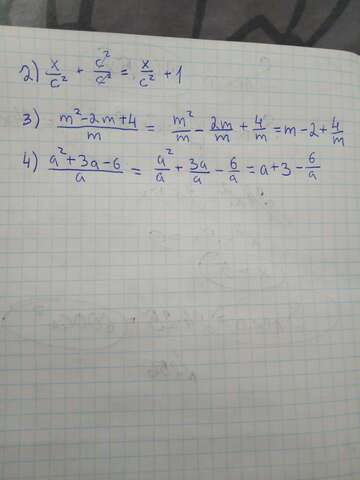 2) x/c² + c²/c² = x/c² + 1
3) (m²-2m+4)/m = m²/m - 2m/m + 4/m = m-2+4/m
4) (a²+3a-6)/a = a²/a + 3a/a - 6/a = a+3-6/a